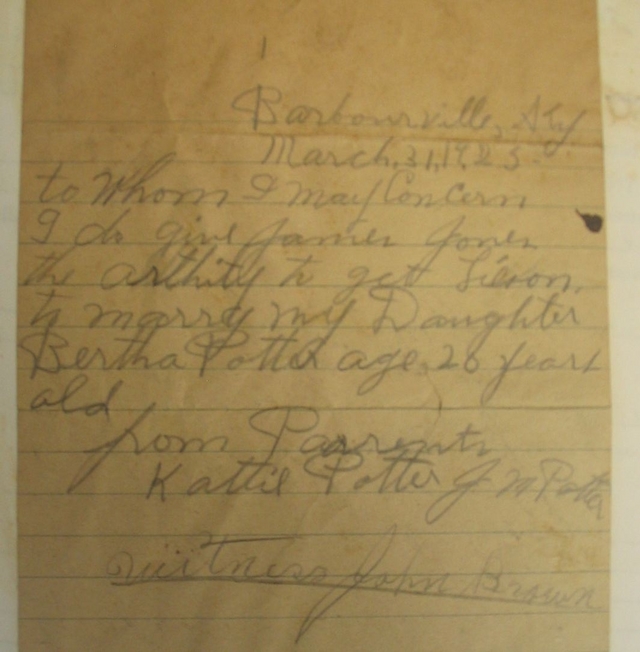 Barbourville, Ky
March, 31, 1923
to Whom I may Concern
I do give James Jones
the arthity to get Licson,
to marry my Daughter
Bertha Potter age 26 years
old
from Parrents
Kattie Potter J M Potter
Wiitness John Brown